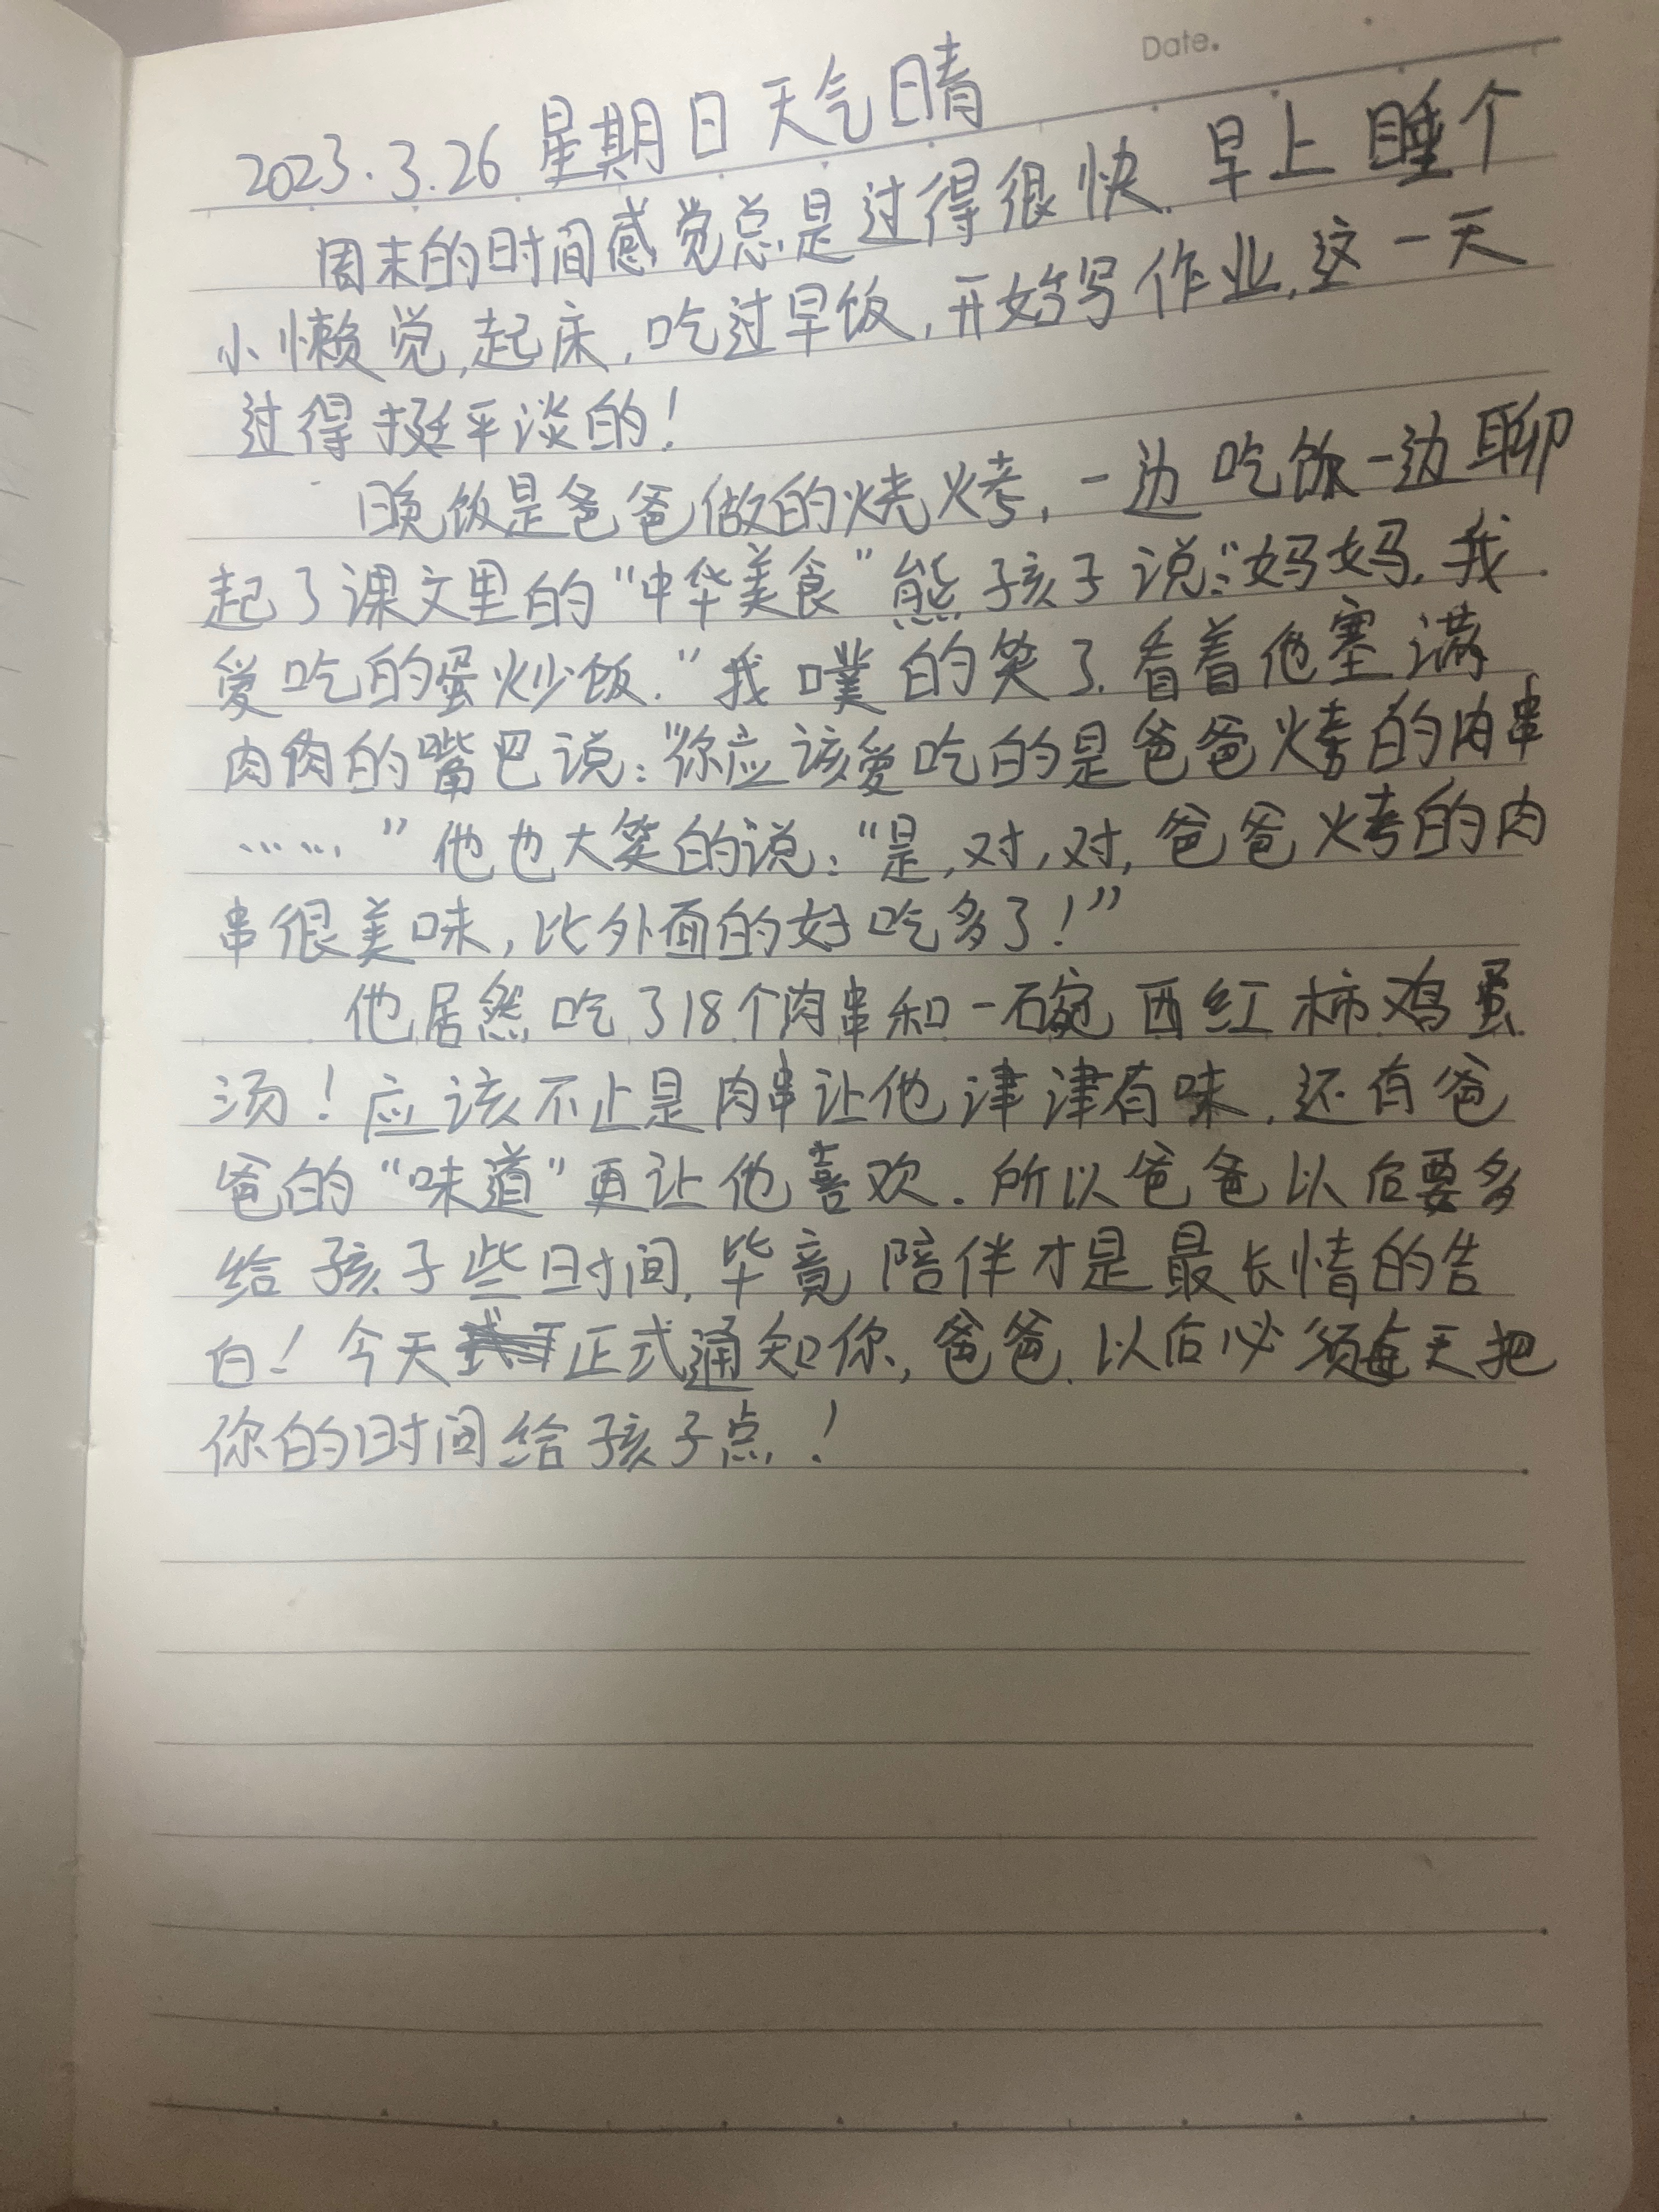 Date.
2023.3.26 星期日 天气晴
周末的时间感觉总是过得很快.早上睡个
小懒觉,起床,吃过早饭,开始写作业,这一天
过得挺平淡的!
晚饭是爸爸做的烧烤,一边吃饭一边聊
起了课文里的“中华美食”熊孩子说:“妈妈,我
爱吃的蛋炒饭.”我噗的笑了.看着他塞满
肉肉的嘴巴说:“你应该爱吃的是爸爸烤的肉串
……”他也大笑的说:“是,对,对,爸爸烤的肉
串很美味,比外面的好吃多了!”
他居然吃了18个肉串和一碗西红柿鸡蛋
汤!应该不止是肉串让他津津有味,还有爸
爸的“味道”更让他喜欢.所以爸爸以后要多
给孩子些时间,毕竟陪伴才是最长情的告
白!今天正式通知你,爸爸.以后必须每天把
你的时间给孩子点!